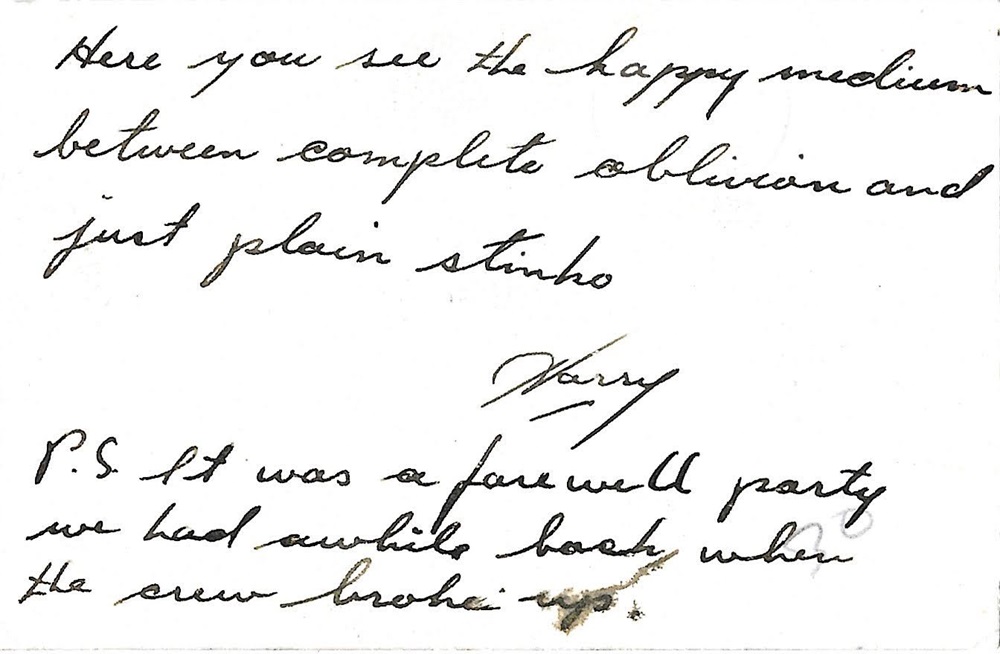 Here you see the happy medium
between complete oblivion and
just plain stinko
Harry
P.S. It was a farewell party
we had awhile back when
the crew broke up.
30